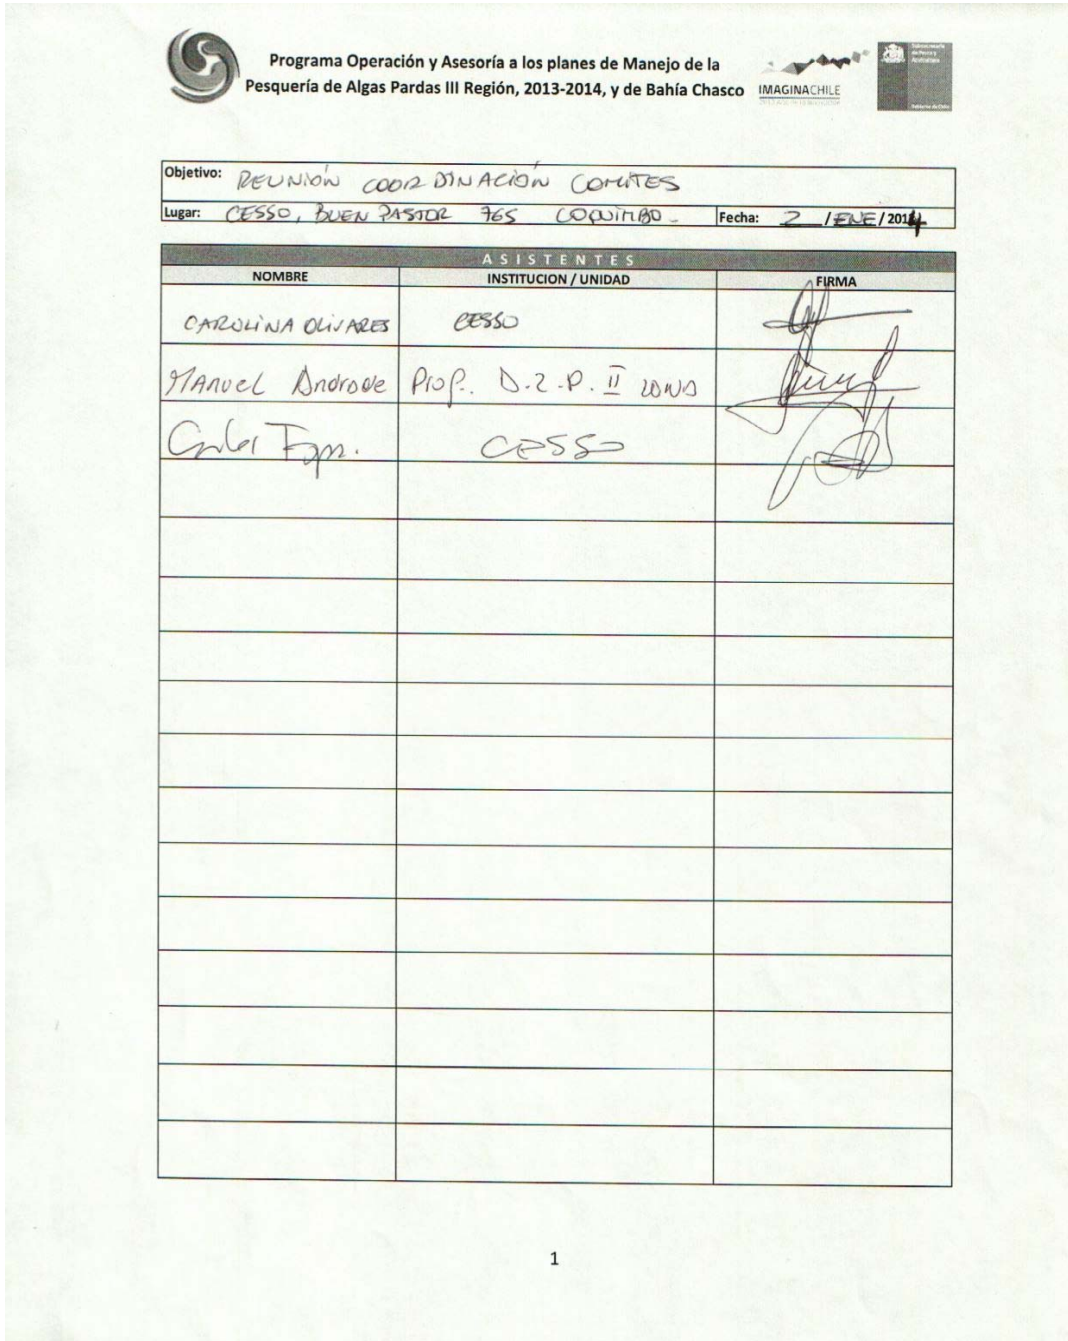 Programa Operación y Asesoría a los planes de Manejo de la
Pesquería de Algas Pardas III Región, 2013-2014, y de Bahía Chasco
IMAGINACHILE
Objetivo: REUNIÓN COORDINACIÓN COMITES
Lugar: CESSO, BUEN PASTOR 765 COQUIMBO - Fecha: 2 / ENE / 2014
ASISTENTES
NOMBRE INSTITUCION / UNIDAD FIRMA
CAROLINA OLIVARES CESSO
MANUEL Andrade Prof. D.Z.P. II ZONA
CESSO
1